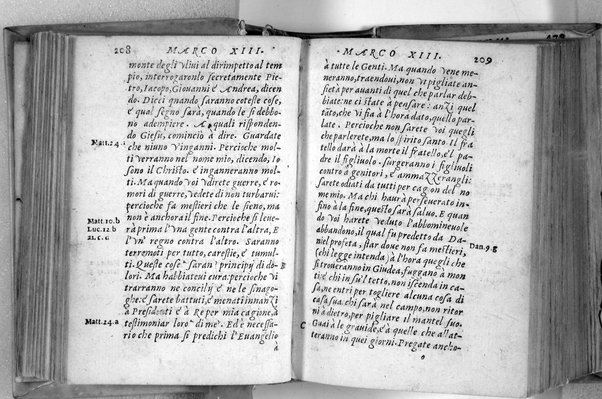 208 MARCO XIII.
monte degli Vliui al dirimpetto al tem
pio, interrogaronlo secretamente Pie-
tro, Iacopo, Giouanni e Andrea, dicen
do. Dicci quando saranno coteste cose,
e qual segno sarà, quando le si debbo-
no adempiere. A quali risponden-
do Giesu, cominciò à dire. Guardate
Matt.24.
che niuno v'inganni. Percioche mol-
ti verranno nel nome mio, dicendo, Io
sono il Christo. e inganneranno mol-
ti. Ma quando voi vdirete guerre, e ro-
mori di guerre, vedete di non turbarui:
percioche fa mestieri che le sieno, ma
non è anchora il fine. Percioche si leue-
Matt.10.b
rà prima l'vna gente contra l'altra, E
Luc.12.b
l'vn' regno contra l'altro. Saranno
21.c.e
terremoti per tutto, carestie, e tumul-
ti. Queste cose saran' principij di do-
B
lori. Ma habbiateui cura: percioche vi
trarranno ne concilij e ne le sinago-
ghe: e sarete battuti, e menati innanzi
à Presidenti e à Re per mia cagine, à
Matt.24.a
testimoniar loro di me. Ed e necessa-
rio che prima si predichi l'Euangelio
à
MARCO XIII. 209
à tutte le Genti. Ma quando vene me-
neranno, traendoui, non vi pigliate an-
sietà per auanti di quel che parlar deb-
biate: ne ci state à pensare: anzi quel
tutto, che vi fia à l'hora dato, quello par-
late. Percioche non sarete voi quegli
che parlerete, ma lo spirito santo. Il fra
tello darà à la morte il fratello, e'l pa-
dre il figliuolo. surgeranno i figliuoli
contro à genitori, e ammazzerangli:
sarete odiati da tutti per cagion del no
me mio. Ma chi haurà perseuerato in-
sino à la fine, questo sarà saluo. E quan
do voi harete veduto l'abbomineuole
abbandono, il qual fu predetto da Da-
Dan.9.g
niel profeta, star doue non fa mestieri,
(chi legge intenda) à l'hora quegli che
si troueranno in Giudea, fuggano à mon
ti: e chi in su'l tetto, non iscenda in ca-
sa, ne entri per togliere alcuna cosa di
casa sua. chi sarà nel campo, non ritor
ni à dietro, per pigliare il mantel suo.
C
Guai à le grauide, e à quelle che allat-
teranno in quei giorni. Pregate ancho-
o